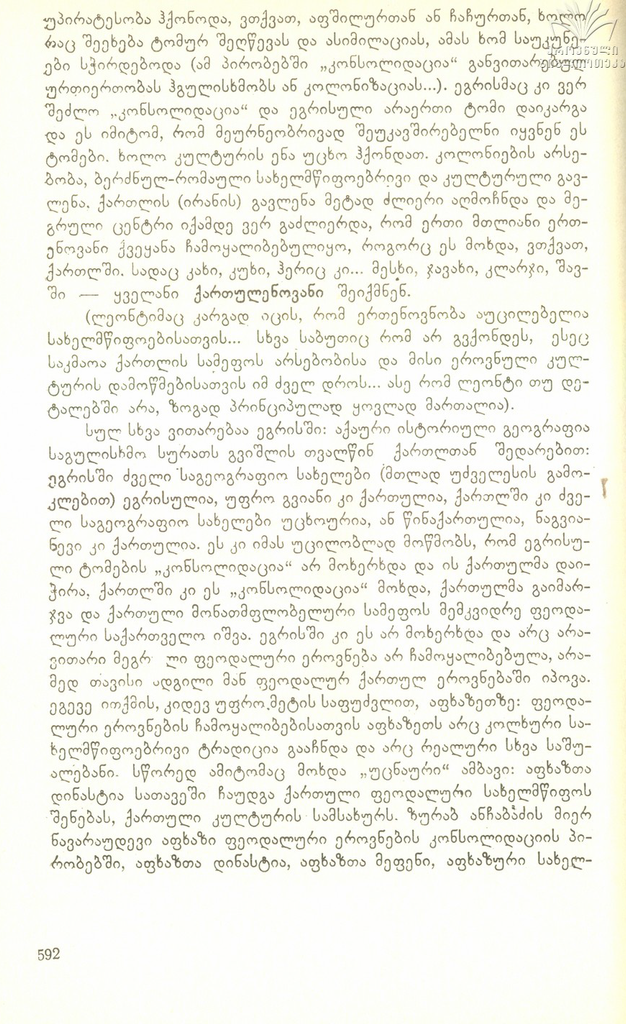 უპირატესობა ჰქონოდა, ვთქვათ, აფშილურთან ან ჩაჩურთან, ხოლო
რაც შეეხება ტომურ შეღწევას და ასიმილაციას, ამას ხომ საუკუნე-
ები სჭირდებოდა (ამ პირობებში „კონსოლიდაცია“ განვითარებულ
ურთიერთობას ჰგულისხმობს ან კოლონიზაციას...). ეგრისმაც კი ვერ
შეძლო „კონსოლიდაცია“ და ეგრისული არაერთი ტომი დაიკარგა
და ეს იმიტომ, რომ მეურნეობრივად შეუკავშირებელნი იყვნენ ეს
ტომები. ხოლო კულტურის ენა უცხო ჰქონდათ. კოლონიების არსე-
ბობა, ბერძნულ-რომაული სახელმწიფოებრივი და კულტურული გავ-
ლენა. ქართლის (ირანის) გავლენა მეტად ძლიერი აღმოჩნდა და მე-
გრული ცენტრი იქამდე ვერ გაძლიერდა, რომ ერთი მთლიანი ერთ-
ენოვანი ქვეყანა ჩამოყალიბებულიყო, როგორც ეს მოხდა, ვთქვათ,
ქართლში. სადაც კახი, კუხი, ჰერიც კი... მესხი, ჯავახი, კლარჯი, შავ-
ში — ყველანი ქართულენოვანი შეიქმნენ.
(ლეონტიმაც კარგად იცის, რომ ერთენოვნობა აუცილებელია
სახელმწიფოებისათვის... სხვა საბუთიც რომ არ გვქონდეს, ესეც
საკმაოა ქართლის სამეფოს არსებობისა და მისი ეროვნული კულ-
ტურის დამოწმებისათვის იმ ძველ დროს... ასე რომ ლეონტი თუ დე-
ტალებში არა, ზოგად პრინციპულად ყოვლად მართალია).
სულ სხვა ვითარებაა ეგრისში: აქაური ისტორიული გეოგრაფია
საგულისხმო სურათს გვიშლის თვალწინ ქართლთან შედარებით:
ეგრისში ძველი საგეოგრაფიო სახელები (მთლად უძველესის გამო-
კლებით) ეგრისულია, უფრო გვიანი კი ქართულია, ქართლში კი ძვე-
ლი საგეოგრაფიო სახელები უცხოურია, ან წინაქართულია, ნაგვია-
ნევი კი ქართულია. ეს კი იმას უცილობლად მოწმობს, რომ ეგრისუ-
ლი ტომების „კონსოლიდაცია“ არ მოხერხდა და ის ქართულმა დაი-
ჭირა, ქართლში კი ეს „კონსოლიდაცია“ მოხდა, ქართულმა გაიმარ-
ჯვა და ქართული მონათმფლობელური სამეფოს მემკვიდრე ფეოდა-
ლური საქართველო იშვა. ეგრისში კი ეს არ მოხერხდა და არც არა-
ვითარი მეგრ ლი ფეოდალური ეროვნება არ ჩამოყალიბებულა, არა-
მედ თავისი ადგილი მან ფეოდალურ ქართულ ეროვნებაში იპოვა.
ეგევე ითქმის, კიდევ უფრო.მეტის საფუძვლით, აფხაზეთზე: ფეოდა-
ლური ეროვნების ჩამოყალიბებისათვის აფხაზეთს არც კოლხური სა-
ხელმწიფოებრივი ტრადიცია გააჩნდა და არც რეალური სხვა საშუ-
ალებანი. სწორედ ამიტომაც მოხდა „უცნაური“ ამბავი: აფხაზთა
დინასტია სათავეში ჩაუდგა ქართული ფეოდალური სახელმწიფოს
შენებას, ქართული კულტურის სამსახურს. ზურაბ ანჩაბაძის მიერ
ნავარაუდევი აფხაზი ფეოდალური ეროვნების კონსოლიდაციის პი-
რობებში, აფხაზთა დინასტია, აფხაზთა მეფენი, აფხაზური სახელ-
592
ეროვნული
ბიბლიოთეკა